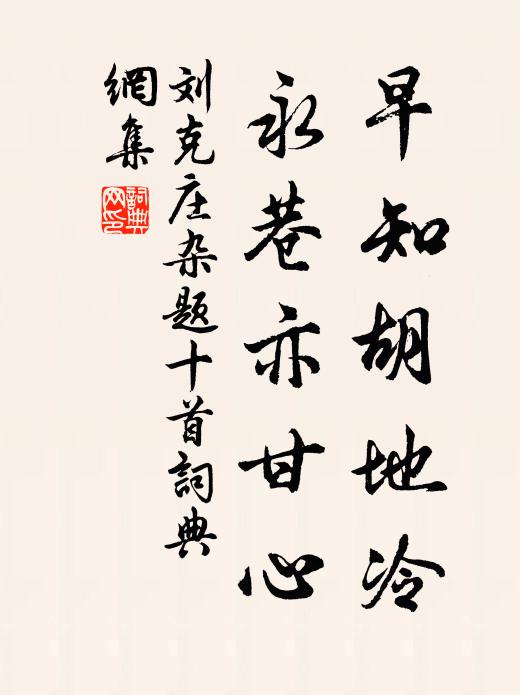 早知胡地冷
永巷亦甘心
刘克庄杂题十首詞典
網集
詞典
网印